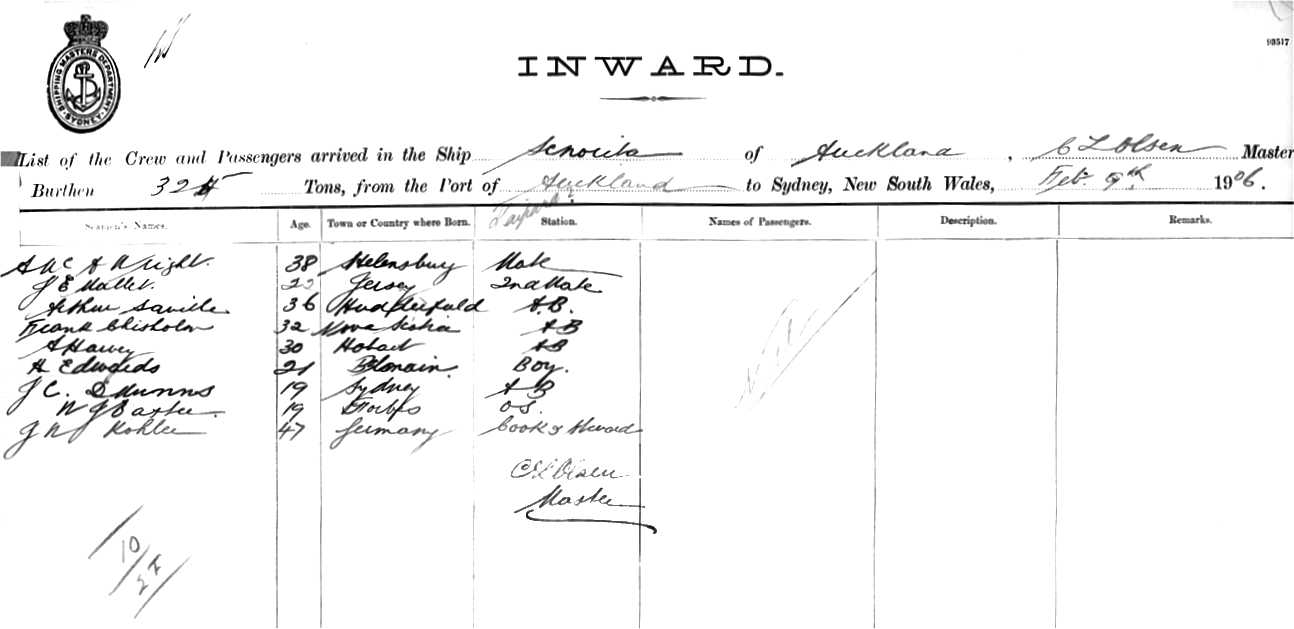 SHIPPING MASTERS DEPARTMENT SYDNEY
93517
INWARD.
List of the Crew and Passengers arrived in the Ship Senorita of Auckland, C L Olsen Master
Burthen 324 Tons, from the Port of Auckland to Sydney, New South Wales, Feb. 9th 1906.
Kaipara
Seamen's Names. Age. Town or Country where Born. Station. Names of Passengers. Description. Remarks.
A Mc A Wright. 38 Helensbury Mate
J E Mallet. Jersey 2nd Mate
Arthur Saville 36 Hudderfield A.B.
Frank Chisholm 32 Nova Scotia AB
A Harvey 30 Hobart AB
H Edwards 21 Boy.
J C. Munns 19 Sydney AB
W J Baxter 19 Forbes OS.
J W Kohler 47 Germany Cook & Steward
C L Olsen
Master
10